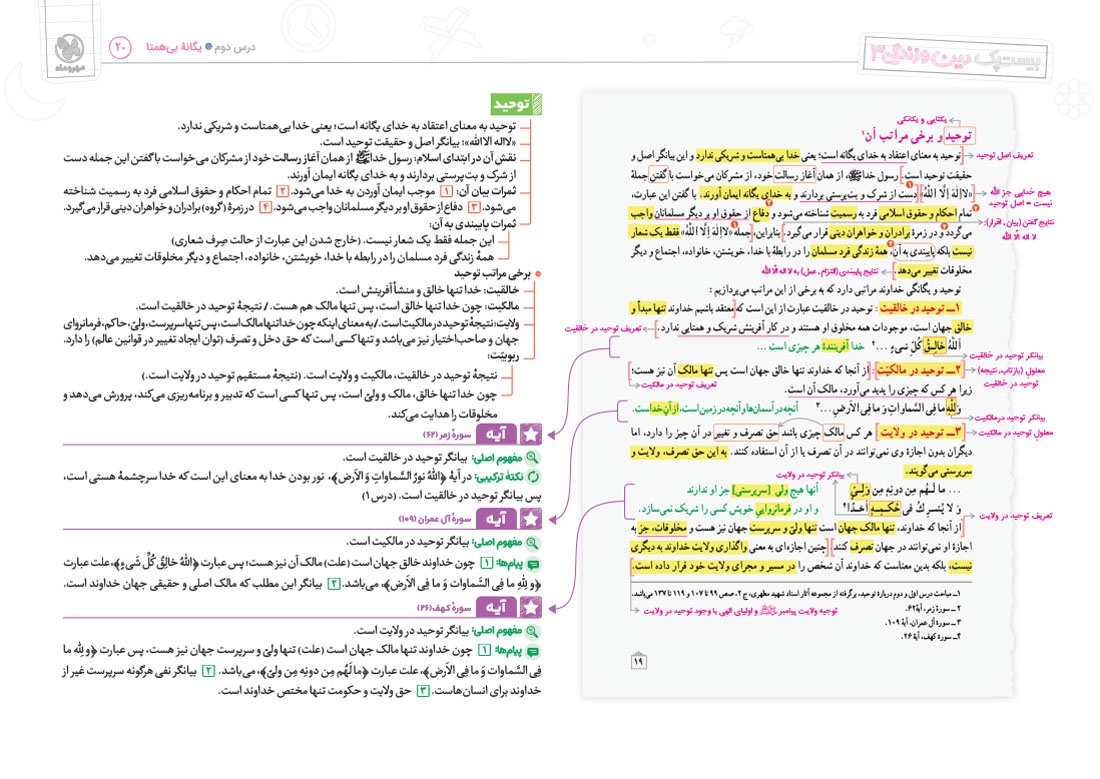 بیست‌پک دین و زندگی ۳
درس دوم ● یگانهٔ بی‌همتا
۲۰
مهروماه
یکتایی و یگانگی
توحید و برخی مراتب آن۱
توحید به معنای اعتقاد به خدای یگانه است؛ یعنی خدا بی‌همتاست و شریکی ندارد و این بیانگر اصل و
حقیقت توحید است. رسول خدا ﷺ، از همان آغاز رسالت خود، از مشرکان می‌خواست با گفتن جملهٔ
«لااِلٰهَ اِلَّا اللّٰهُ» دست از شرک و بت‌پرستی بردارند و به خدای یگانه ایمان آورند. با گفتن این عبارت،
تمام احکام و حقوق اسلامی فرد به رسمیت شناخته می‌شود و دفاع از حقوق او بر دیگر مسلمانان واجب
می‌گردد و در زمرهٔ برادران و خواهران دینی قرار می‌گیرد. بنابراین، جمله «لااِلٰهَ اِلَّا اللّٰهُ» فقط یک شعار
نیست بلکه پایبندی به آن، همهٔ زندگی فرد مسلمان را در رابطهٔ با خدا، خویشتن، خانواده، اجتماع و دیگر
مخلوقات تغییر می‌دهد.
نتایج پایبندی (التزام، عمل) به لا اله الّا اللّٰه
توحید و یگانگی خداوند مراتبی دارد که به برخی از این مراتب می‌پردازیم :
۱ــ توحید در خالقیت : توحید در خالقیت عبارت از این است که معتقد باشیم خداوند تنها مبدأ و
خالق جهان است، موجودات همه مخلوق او هستند و در کار آفرینش شریک و همتایی ندارد.
تعریف توحید در خالقیت
اَللّٰهُ خالِقُ کُلِّ شَیءٍ ...۲ خدا آفرینندهٔ هر چیزی است ...
۲ــ توحید در مالکیّت : از آنجا که خداوند تنها خالق جهان است پس تنها مالک آن نیز هست؛
زیرا هر کس که چیزی را پدید می‌آورد، مالک آن است.
تعریف توحید در مالکیت
وَ لِلّٰهِ ما فِی السَّماواتِ وَ ما فِی الاَرضِ ...۳ آنچه در آسمان‌ها و آنچه در زمین است، از آن خداست.
۳ــ توحید در ولایت : هر کس مالک چیزی باشد حق تصرف و تغییر در آن چیز را دارد، اما
دیگران بدون اجازهٔ وی نمی‌توانند در آن تصرف یا از آن استفاده کنند. به این حق تصرف، ولایت و
سرپرستی می‌گویند.
بیانگر توحید در ولایت
... ما لَهُم مِن دونِهٖ مِن وَلِیٍّ آنها هیچ ولی [سرپرستی] جز او ندارند
وَ لا یُشرِکُ فی حُکمِهٖ اَحَدًا۴ و او در فرمانروایی خویش کسی را شریک نمی‌سازد.
از آنجا که خداوند، تنها مالک جهان است تنها ولیّ و سرپرست جهان نیز هست و مخلوقات، جز به
اجازهٔ او نمی‌توانند در جهان تصرف کنند. چنین اجازه‌ای به معنی واگذاری ولایت خداوند به دیگری
نیست، بلکه بدین معناست که خداوند آن شخص را در مسیر و مجرای ولایت خود قرار داده است.
۱ــ مباحث درس اول و دوم دربارهٔ توحید، برگرفته از مجموعه آثار استاد شهید مطهری، ج ۲، صص ۹۹ تا ۱۰۷ و ۱۱۹ تا ۱۳۷ می‌باشد.
۲ــ سورهٔ زمر، آیهٔ ۶۲.
توجیه ولایت پیامبر ﷺ و اولیای الهی با وجود توحید در ولایت
۳ــ سورهٔ آل عمران، آیهٔ ۱۰۹.
۴ــ سورهٔ کهف، آیهٔ ۲۶.
۱۹
تعریف اصل توحید
هیچ خدایی جز اللّٰه
نیست = اصل توحید
نتایج گفتن (بیان، اقرار):
لا اله الّا اللّٰه
بیانگر توحید در خالقیت
معلول (بازتاب، نتیجه)
توحید در خالقیت
بیانگر توحید در مالکیت
معلول توحید در مالکیت
تعریف توحید در ولایت
توحید
توحید به معنای اعتقاد به خدای یگانه است؛ یعنی خدا بی‌همتاست و شریکی ندارد.
«لااله الاالله»: بیانگر اصل و حقیقت توحید است.
نقش آن در ابتدای اسلام: رسول خدا ﷺ از همان آغاز رسالت خود از مشرکان می‌خواست با گفتن این جمله دست
از شرک و بت‌پرستی بردارند و به خدای یگانه ایمان آورند.
ثمرات بیان آن: ۱ موجب ایمان آوردن به خدا می‌شود. ۲ تمام احکام و حقوق اسلامی فرد به رسمیت شناخته
می‌شود. ۳ دفاع از حقوق او بر دیگر مسلمانان واجب می‌شود. ۴ در زمرهٔ (گروه) برادران و خواهران دینی قرار می‌گیرد.
ثمرات پایبندی به آن:
این جمله فقط یک شعار نیست. (خارج شدن این عبارت از حالت صِرف شعاری)
همهٔ زندگی فرد مسلمان را در رابطه با خدا، خویشتن، خانواده، اجتماع و دیگر مخلوقات تغییر می‌دهد.
برخی مراتب توحید
خالقیت: خدا تنها خالق و منشأ آفرینش است.
مالکیت: چون خدا تنها خالق است، پس تنها مالک هم هست. / نتیجهٔ توحید در خالقیت است.
ولایت: نتیجهٔ توحید در مالکیت است. / به معنای اینکه چون خدا تنها مالک است، پس تنها سرپرست، ولیّ، حاکم، فرمانروای
جهان و صاحب‌اختیار نیز می‌باشد و تنها کسی است که حق دخل و تصرف (توان ایجاد تغییر در قوانین عالم) را دارد.
ربوبیت:
نتیجهٔ توحید در خالقیت، مالکیت و ولایت است. (نتیجهٔ مستقیم توحید در ولایت است.)
چون خدای تنها خالق، مالک و ولیّ است، پس تنها کسی است که تدبیر و برنامه‌ریزی می‌کند، پرورش می‌دهد و
مخلوقات را هدایت می‌کند.
آیه سورهٔ زمر (۶۲)
مفهوم اصلی: بیانگر توحید در خالقیت است.
نکتهٔ ترکیبی: در آیهٔ ﴿اللّٰهُ نورُ السَّماواتِ وَ الاَرضِ﴾، نور بودن خدا به معنای این است که خدا سرچشمهٔ هستی است،
پس بیانگر توحید در خالقیت است. (درس ۱)
آیه سورهٔ آل عمران (۱۰۹)
مفهوم اصلی: بیانگر توحید در مالکیت است.
پیام‌ها: ۱ چون خداوند خالق جهان است (علت) مالک آن نیز هست؛ پس عبارت ﴿اَللّٰهُ خالِقُ کُلِّ شَیءٍ﴾، علت عبارت
﴿وَ لِلّٰهِ ما فِی السَّماوات وَ ما فِی الاَرض﴾، می‌باشد. ۲ بیانگر این مطلب که مالک اصلی و حقیقی جهان خداوند است.
آیه سورهٔ کهف (۲۶)
مفهوم اصلی: بیانگر توحید در ولایت است.
پیام‌ها: ۱ چون خداوند تنها مالک جهان است (علت) تنها ولیّ و سرپرست جهان نیز هست، پس عبارت ﴿و للّٰه ما
فِی السَّماوات وَ ما فِی الاَرض﴾، علت عبارت ﴿ما لَهُم مِن دونِه مِن ولیّ﴾، می‌باشد. ۲ بیانگر نفی هرگونه سرپرست غیر از
خداوند برای انسان‌هاست. ۳ حق ولایت و حکومت تنها مختص خداوند است.